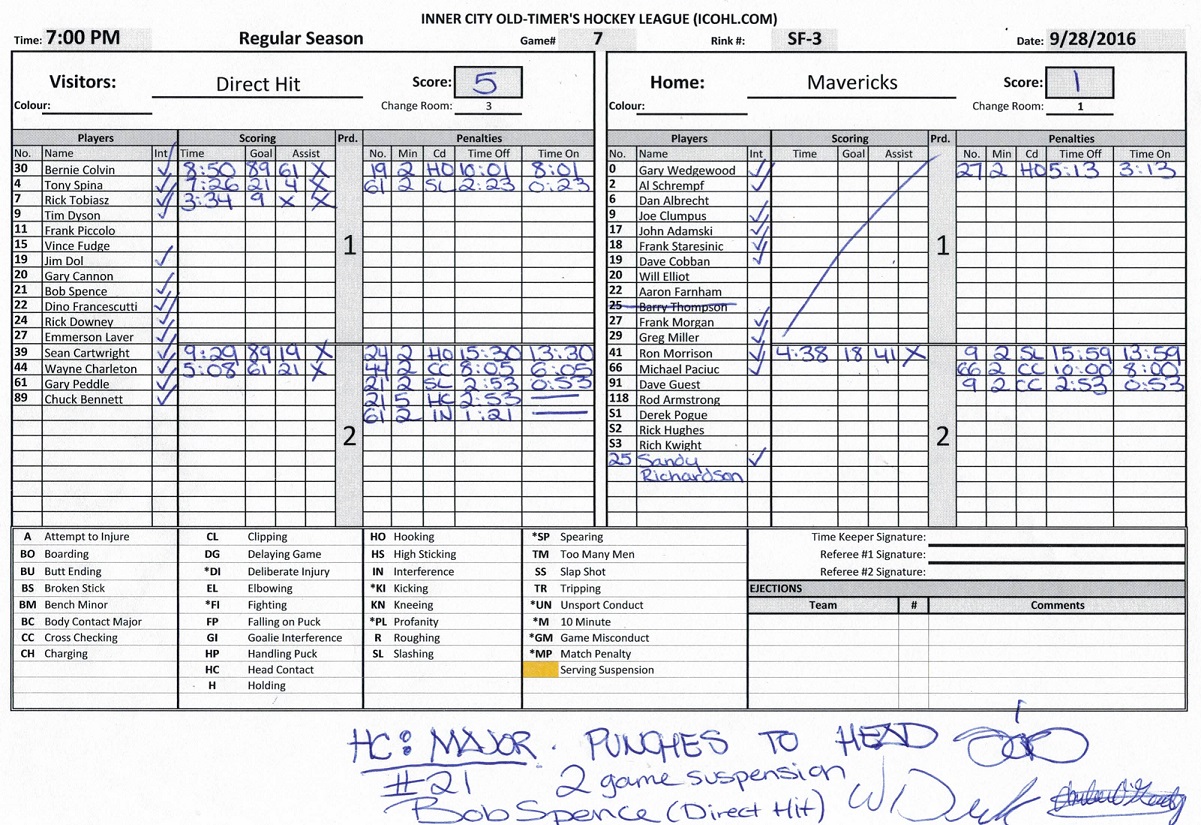 INNER CITY OLD-TIMER'S HOCKEY LEAGUE (ICOHL.COM)
Time: 7:00 PM Regular Season Game# 7 Rink #: SF-3 Date: 9/28/2016
Visitors: Direct Hit Score: 5 Home: Mavericks Score: 1
Colour: Change Room: 3 Colour: Change Room: 1
Players Scoring Prd. Penalties Players Scoring Prd. Penalties
No. Name Int Time Goal Assist No. Min Cd Time Off Time On No. Name Int Time Goal Assist No. Min Cd Time Off Time On
30 Bernie Colvin ✓ 8:50 89 61 X 19 2 HO 10:01 8:01 0 Gary Wedgewood ✓ 27 2 HO 5:13 3:13
4 Tony Spina ✓ 7:26 21 4 X 61 2 SL 2:23 0:23 2 Al Schrempf ✓
7 Rick Tobiasz ✓ 3:34 9 X X 6 Dan Albrecht
9 Tim Dyson ✓ 9 Joe Clumpus ✓
11 Frank Piccolo 17 John Adamski ✓
15 Vince Fudge 1 18 Frank Staresinic ✓ 1
19 Jim Dol ✓ 19 Dave Cobban ✓
20 Gary Cannon ✓ 20 Will Elliot
21 Bob Spence ✓ 22 Aaron Farnham
22 Dino Francescutti ✓ 25 Barry Thompson
24 Rick Downey ✓ 27 Frank Morgan ✓
27 Emmerson Laver ✓ 29 Greg Miller ✓
39 Sean Cartwright ✓ 9:29 89 19 X 24 2 HO 15:30 13:30 41 Ron Morrison ✓ 4:38 18 41 X 9 2 SL 15:59 13:59
44 Wayne Charleton ✓ 5:08 61 21 X 44 2 CC 8:05 6:05 66 Michael Paciuc ✓ 66 2 CC 10:00 8:00
61 Gary Peddle ✓ 21 2 SL 2:53 0:53 91 Dave Guest 9 2 CC 2:53 0:53
89 Chuck Bennett ✓ 21 5 HC 2:53 — 118 Rod Armstrong
61 2 IN 1:21 — S1 Derek Pogue
2 S2 Rick Hughes 2
S3 Rich Kwight
25 Sandy ✓
Richardson
A Attempt to Injure CL Clipping HO Hooking *SP Spearing Time Keeper Signature:
BO Boarding DG Delaying Game HS High Sticking TM Too Many Men Referee #1 Signature:
BU Butt Ending *DI Deliberate Injury IN Interference SS Slap Shot Referee #2 Signature:
BS Broken Stick EL Elbowing *KI Kicking TR Tripping EJECTIONS
BM Bench Minor *FI Fighting KN Kneeing *UN Unsport Conduct Team # Comments
BC Body Contact Major FP Falling on Puck *PL Profanity *M 10 Minute
CC Cross Checking GI Goalie Interference R Roughing *GM Game Misconduct
CH Charging HP Handling Puck SL Slashing *MP Match Penalty
HC Head Contact Serving Suspension
H Holding
HC: MAJOR. PUNCHES TO HEAD
#21 2 game suspension
Bob Spence (Direct Hit)